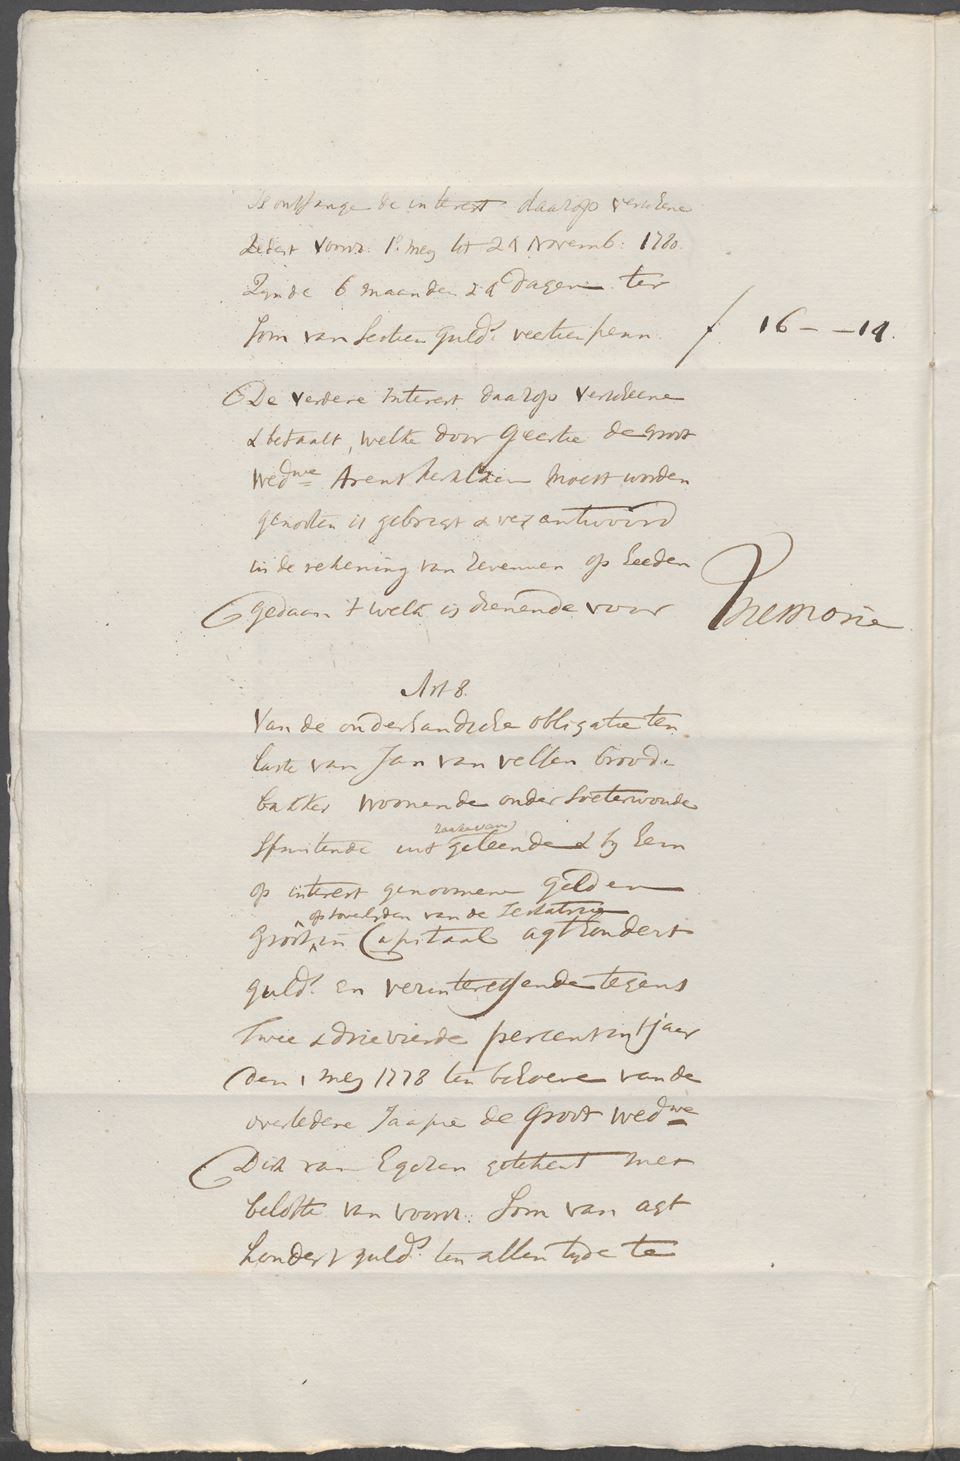 is ontfange de interest daarop verschene
zedert voorn: 1e. meij tot 21 Novemb: 1780.
Zynde 6 maanden 21 dagen ter
Som van Sestien guld.s veertien penn. ƒ 16 - - 14.
De verdere interest daarop verscheene
& betaalt, welke door Geertie de Groot
wed.we Arent moest worden
genoten is gebragt & verantwoord
in de rekening van Revenuen op heeden
gedaan t welk is dienende voor Memorie
Art 8.
Van de onderhandsche obligatie ten
laste van Jan van Velsen brood-
bakker woonende onder Soeterwoude
zaake van
Spruitende uit geleende & by hem
op interest genoomene gelden
op t overlyden van de Testatrice
groot in Capitaal agthondert
guld.s en verinteressende tegens
Twee & drievierde percent in t jaar
den 1 meij 1778 ten behoeve van de
overledene Jaapie de Groot wed.we
Dirk van Egeren getekent met
belofte van voorn: Som van agt
hondert guld.s ten allen tyde te